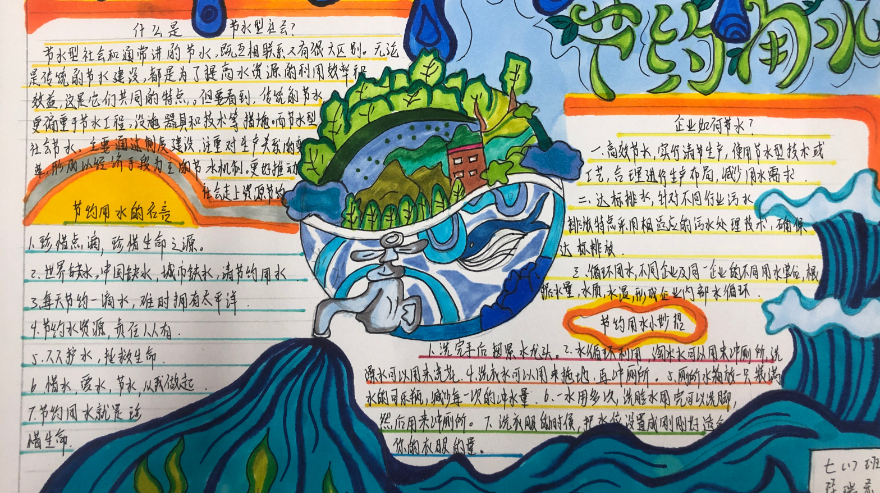 节约用水
什么是节水型社会?
节水型社会和通常讲的节水,既互相联系又有很大区别。无论
是传统的节水建设,都是为了提高水资源的利用效率和
效益,这是它们共同的特点。但要看到,传统的节水
更偏重于节水工程、设施器具和技术等措施,而节水型
社会节水,主要通过制度建设,注重对生产关系的
形成以经济手段为主的节水机制。更好推动
社会走上资源节约
节约用水的名言
1.珍惜点滴,珍惜生命之源。
2.世界缺水,中国缺水,城市缺水,请节约用水
3.每天节约一滴水,难时拥有太平洋.
4.节约水资源,责在人人有.
5.人人护水,拯救生命
6.惜水,爱水,节水,从我做起.
7.节约用水就是珍
惜生命.
企业如何节水?
一.高效节水,实行清节生产,使用节水型技术或
工艺,合理进行生产布局,减少用水需求.
二.达标排水,针对不同行业污水
排放特点采用相适应的污水处理技术,确保
达标排放.
三.循环用水,不同企业及同一企业的不同用水单位,根
据水量,水质,水温,形成企业内部水循环.
节约用水小妙招
1.洗完手后拥紧水龙头.2.水循环利用,淘米水可以用来冲厕所,洗
澡水可以用来浇花.4.洗衣水可以用来拖地,再冲厕所.5.厕所水箱放一只装满
水的可乐瓶,减少每一次的冲水量.6.一水用多次,洗脸水用完可以洗脚,
然后用来冲厕所.7.洗衣服的时候,把水位设置成刚刚好适合
你的衣服的量.
七(1)班